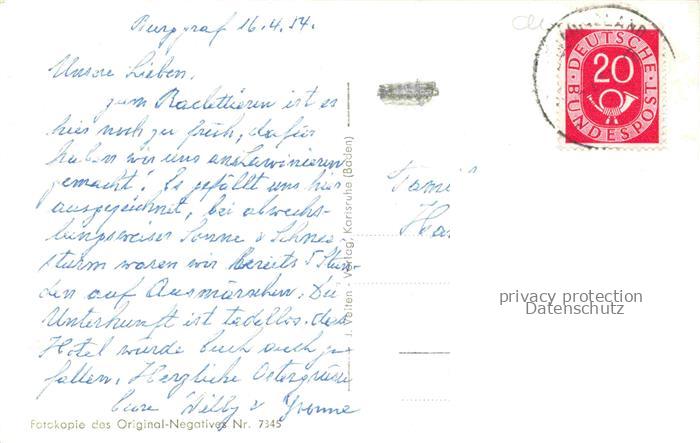 Burggraf 16.4.54.
Unsere Lieben,
zum Raclettieren ist es
hier noch zu früh, dafür
haben wir uns ans
gemacht! Es gefällt uns hier
ausgezeichnet, bei abwechs-
lungsweiser Sonne & Schnee
sturm waren wir bereits 5 Stun-
den auf Ausmärschen. Die
Unterkunft ist tadellos. das
Hotel würde Euch auch ge
fallen. Herzliche Ostergrüsse
Eure Willy & Yvonne
Fotokopie des Original-Negatives Nr. 7345
Verlag, Karlsruhe (Baden)
DEUTSCHE
20
BUNDESPOST
Fami
Ha
privacy protection
Datenschutz